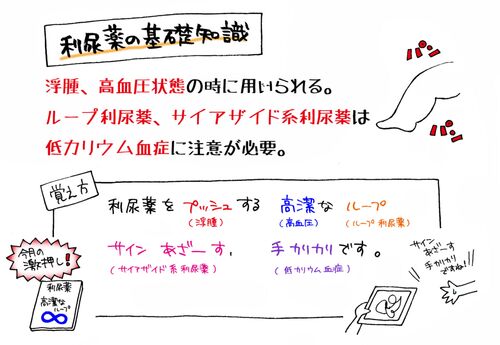 利尿薬の基礎知識
浮腫、高血圧状態の時に用いられる。
ループ利尿薬、サイアザイド系利尿薬は
低カリウム血症に注意が必要。
パン
パン
覚え方
利尿薬をプッシュする 高潔な ループ
(浮腫) (高血圧) (ループ利尿薬)
サイン あざーす、 手カリカリです。
(サイアザイド系利尿薬) (低カリウム血症)
今月の
激押し!
利尿薬
高潔な
ループ
サイン
あざーす
手カリカリ
ですね!